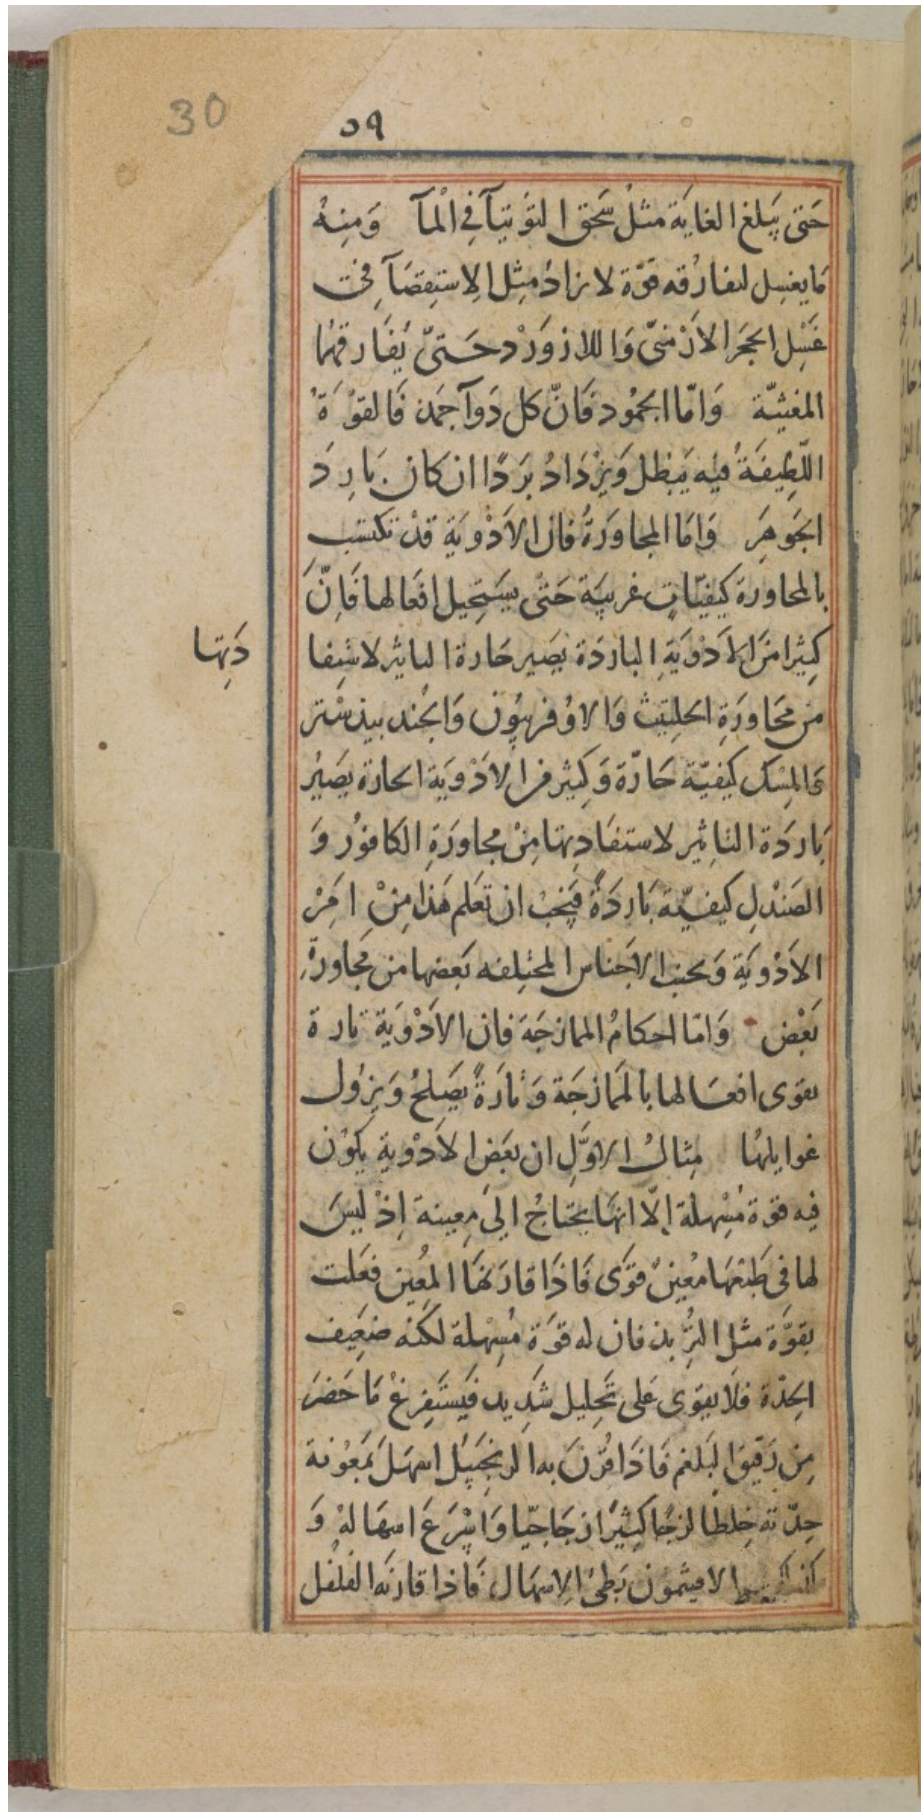 30
٥٩
حَتى يَبلغ الغايَة مثلُ سَحق التُوتيآ في الْمآ وَمِنهُ
مَا يغسِل لتفارُقه قوّة لا تراد مِثل الاِستِقصَآ فى
غَسْلِ الحجَر الاَرْمنىّ وَاللازوَرْد حَتىّ يُفَارقهُا
المغثيّة وَامّا الجمُود فَانّ كل دَوآ جمد فَالقُوّةُ
اللّطِيفَةُ فيْه يَبْطل وَيزْدَادُ بَردًا ان كان بَارِدَ
الجَوهَرِ وَامّا المجاوَرَةُ فان الاَدْوِيَة قدْ تكتسِب
بالمجاورة كَيفيّاتٍ غريبَة حَتى يسَتحِيل افعَالها فَاِنَّ
كِثيرًا مِنَ الاَدْوِيَةِ البارِدَة يَصِير حَارة التاثير لاستِفا
دَتِها
مِن مجَاورَةِ الحِلتيت وَالاوُفربيُون وَالجُند بيدسْتر
وَالمِسك كيْفيّة حَارّة وَكِثير مِن الاَدْوِيَة الحارة يَصِيُر
بَاردَة التاثِير لاستفَادِتها مِنْ مجاوَرَةِ الكافوُر وَ
الصَندْلِ كَيفيّة بَارِدَةً فيَجبُ ان تعَلم هَذا مِنْ امِرْ
الاَدْوِيَة وَيجنب الاَجناس المختِلفه بَعضها من مجاورَةِ
بَعْض وَامّا احكامُ الممازجَة فان الاَدْوِيَة تارة
يقوى افعَالها بالممَازجَة وَتارَةً يَصِلحُ وَيزوُل
غوايلهُا مِثالُ الاوَّلِ ان بَعَض الاَدْوِية يكوُن
فِيه قوة مُسْهلة اِلّا انهَا يحَتاجُ اِلىَ مِعينة اِذْ ليَسَ
لها فى طَبْعهَا مُعِينٌ قوَّى فَاذَا قارَنهَا المُعِين فعَلت
بقوَّة مثل التُربد فان له قوّة مُسِهلة لكنّه ضعِيف
الحِدّة فلَا يقوى عَلى تَحليل شَدِيد فيَستَفرِغْ مَا حَضَرَ
مِن رَقيق البَلغم فَاذَا قُرنَ به الزنجَبيَل اسهَلَ بَمعوُنة
حِدّته خِلطًا لزجًا كِثيرًا زجَاجيّا وَاسْرَعَ اسهَالهُ وَ
كذلك الافيثموُن بَطئ الاِسهَال فَاذا قارنه الفلفل